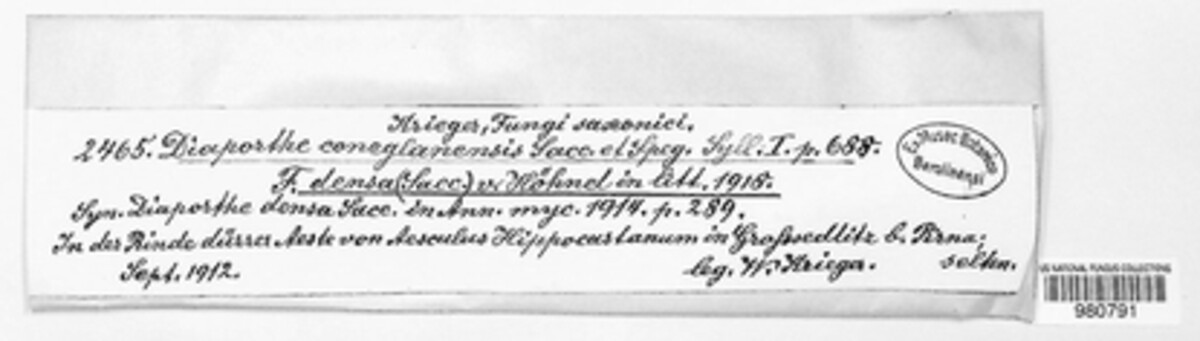 Krieger, Fungi saxonici.
2465. Diaporthe coneglanensis Sacc. et Speg. Syll. I. p. 688.
F. densa (Sacc.) v. Höhnel in litt. 1918.
Syn. Diaporthe densa Sacc. in Ann. myc. 1914. p. 289.
In der Rinde dürrer Aeste von Aesculus Hippocastanum in Großsedlitz b. Pirna;
selten.
Sept. 1912. leg. W. Krieger.
Ex Museo Botanico
Berolinensi
US NATIONAL FUNGUS COLLECTIONS
980791